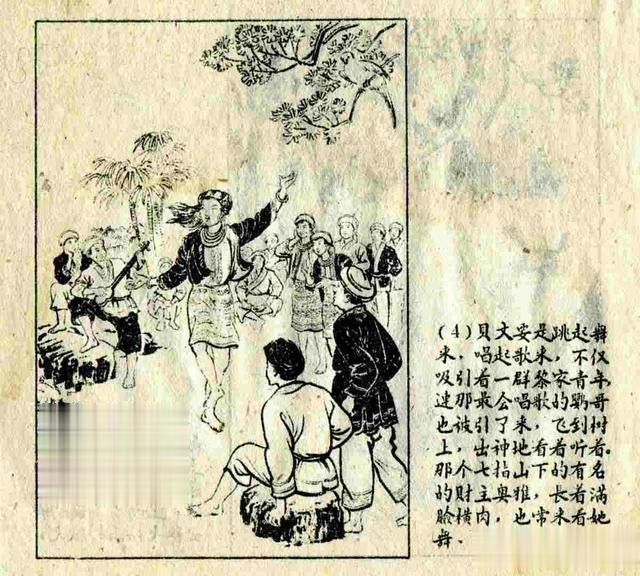 (4) 贝文娄是跳起舞
来，唱起歌来，不仅
吸引着一群黎家青年，
连那最会唱歌的鹦哥
也被引了来，飞到树
上，出神地看着听着。
那个七指山下的有名
的财主奥雅，长着满
脸横肉，也常来看她
舞．